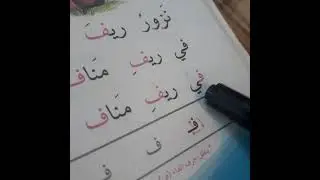 نَزورُ ريفَ
في ريفِ مَنَاف
في ريفِ مَنَاف
ف ف ف